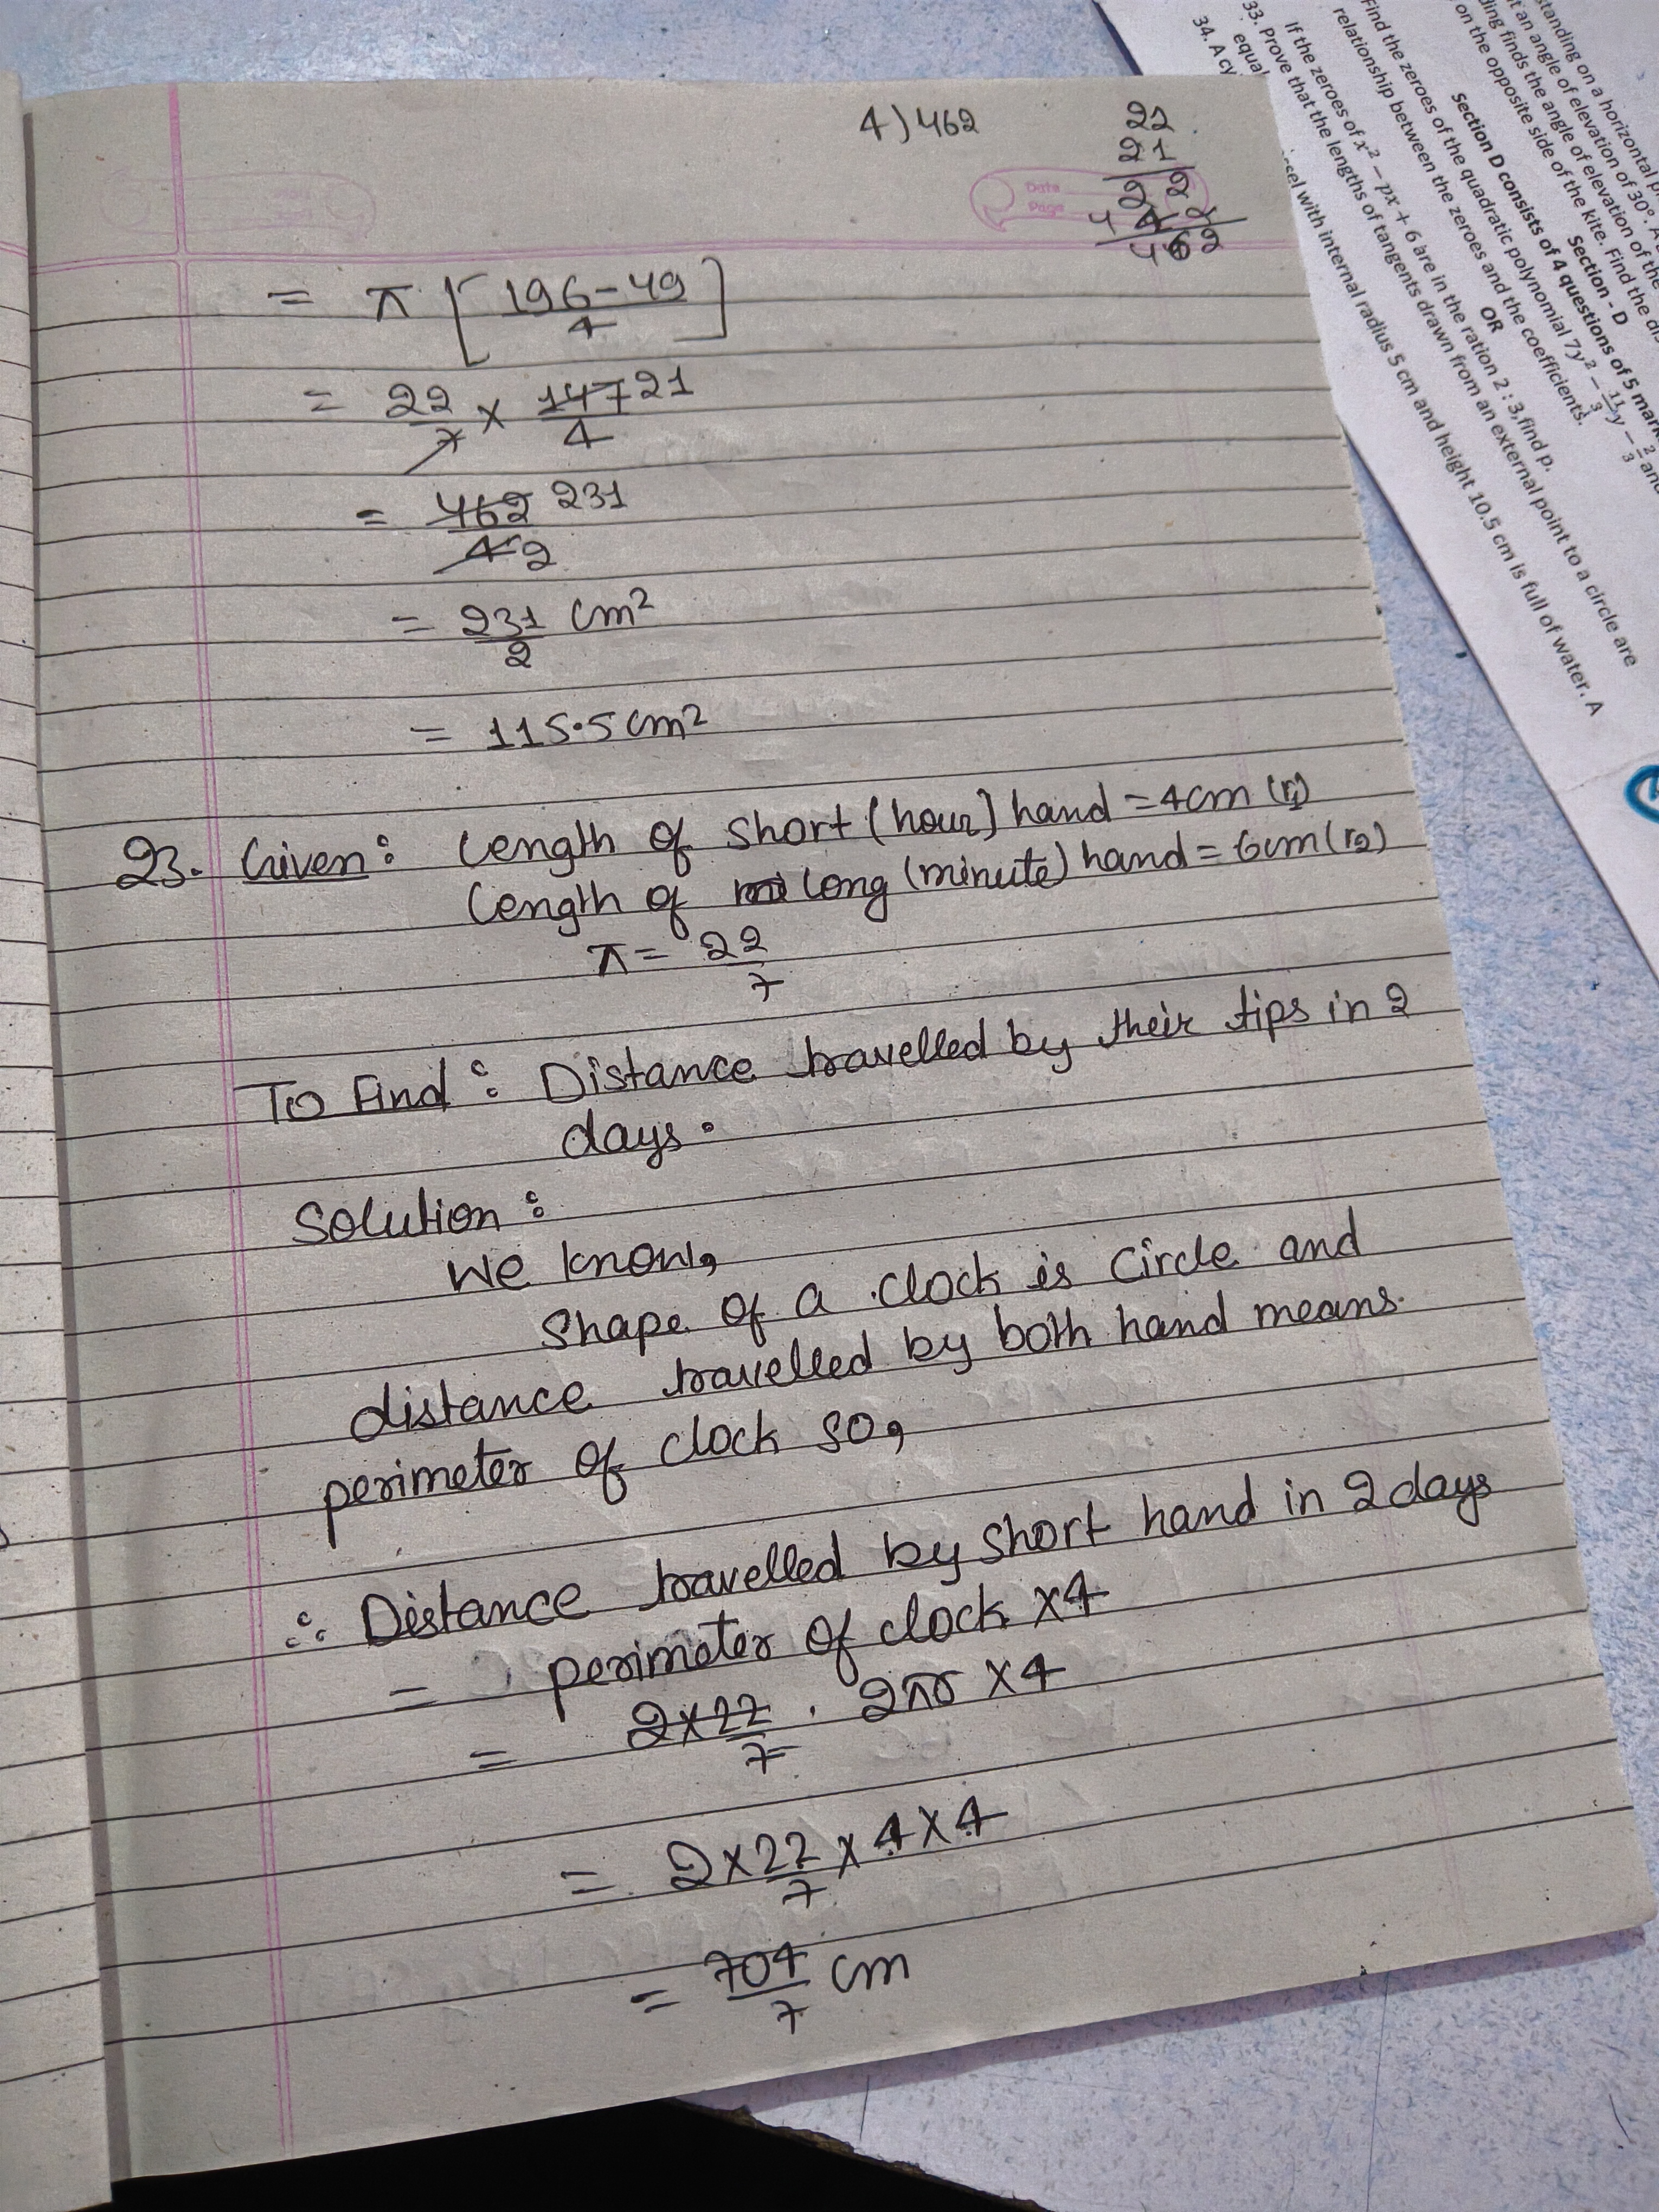 4)462
22
21
22
442
462
= π [196-49/4]
= 22/7 × 147 21/4
= 462 231/4 2
= 231/2 cm²
= 115.5 cm²
23. Given: Length of short (hour) hand = 4cm (r1)
Length of long (minute) hand = 6cm (r2)
π = 22/7
To Find: Distance travelled by their tips in 2
days.
Solution:
We know,
Shape of a clock is circle and
distance travelled by both hand means
perimeter of clock so,
∴ Distance travelled by short hand in 2 days
= perimeter of clock ×4
= 2×22/7 . 2πr ×4
= 2×22/7 ×4×4
= 704/7 cm
Date
Page
standing on a horizontal
at an angle of elevation of 30°. A
finds the angle of elevation of the
on the opposite side of the kite. Find the
Section - D
Section D consists of 4 questions of 5 mark
Find the zeroes of the quadratic polynomial 7y² − 11/3 y − 2/3 and
relationship between the zeroes and the coefficients.
OR
If the zeroes of x² − px + 6 are in the ration 2 : 3, find p.
33. Prove that the lengths of tangents drawn from an external point to a circle are
equal
34. A cy
with internal radius 5 cm and height 10.5 cm is full of water. A